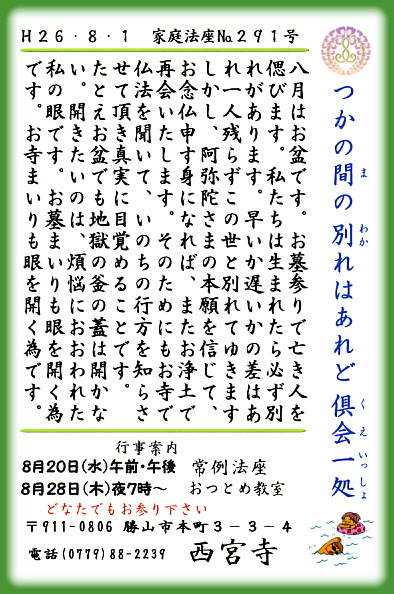 H26・8・1　家庭法座№291号
つかの間の別れはあれど倶会一処
ま
わか
くえいっしょ
八月はお盆です。お墓参りで亡き人を
偲びます。私たちは生まれたら必ず別
れがあります。早いか遅いかの差はあ
れ一人残らずこの世と別れてゆきます
しかし、阿弥陀さまの本願を信じて、
お念仏申す身になれば、またお浄土で
再会いたします。そのためにもお寺で
仏法を聞いて、いのちの行方を知らさ
せて頂き真実に目覚めることです。
たとえお盆でも地獄の釜の蓋は開かな
い。開きたいのは、煩悩におおわれた
私の眼です。お墓まいりも眼を開く為
です。お寺まいりも眼を開く為です。
行事案内
8月20日(水)午前・午後　常例法座
8月28日(木)夜7時～　おつとめ教室
どなたでもお参り下さい
〒911-0806 勝山市本町3－3－4
電話(0779)88-2239　西宮寺